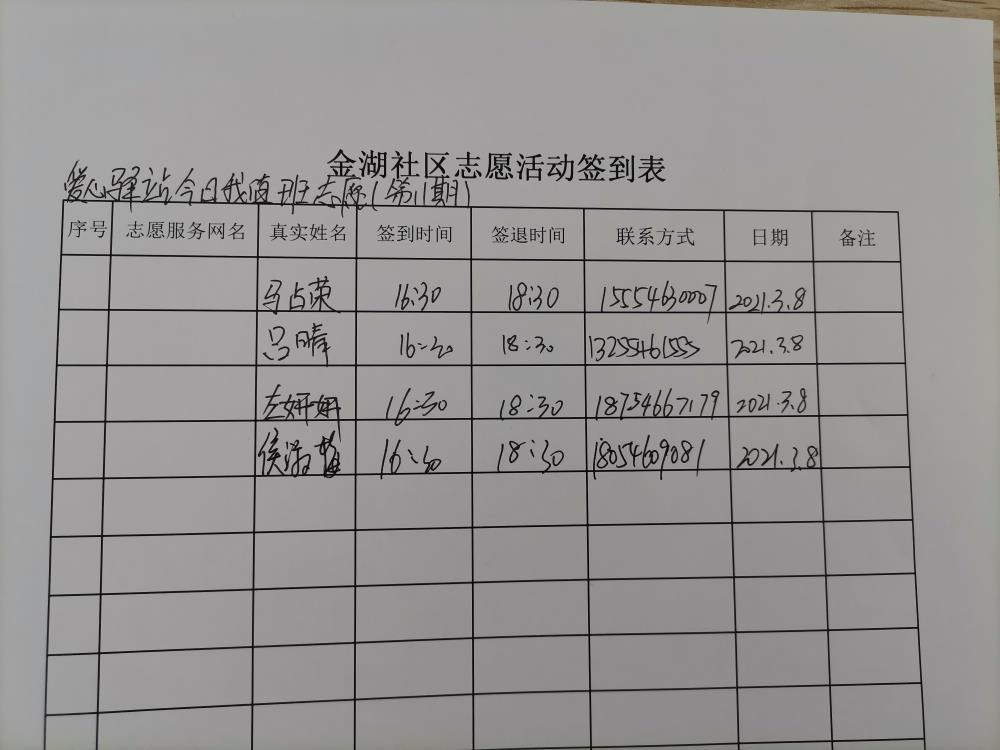 金湖社区志愿活动签到表
爱心驿站今日我值班志愿(第11期)
序号 志愿服务网名 真实姓名 签到时间 签退时间 联系方式 日期 备注
马占荣 16:30 18:30 15554630007 2021.3.8
吕晴 16:30 18:30 13255461555 2021.3.8
左妍妍 16:30 18:30 18754667179 2021.3.8
侯淑梅 16:30 18:30 18054609081 2021.3.8